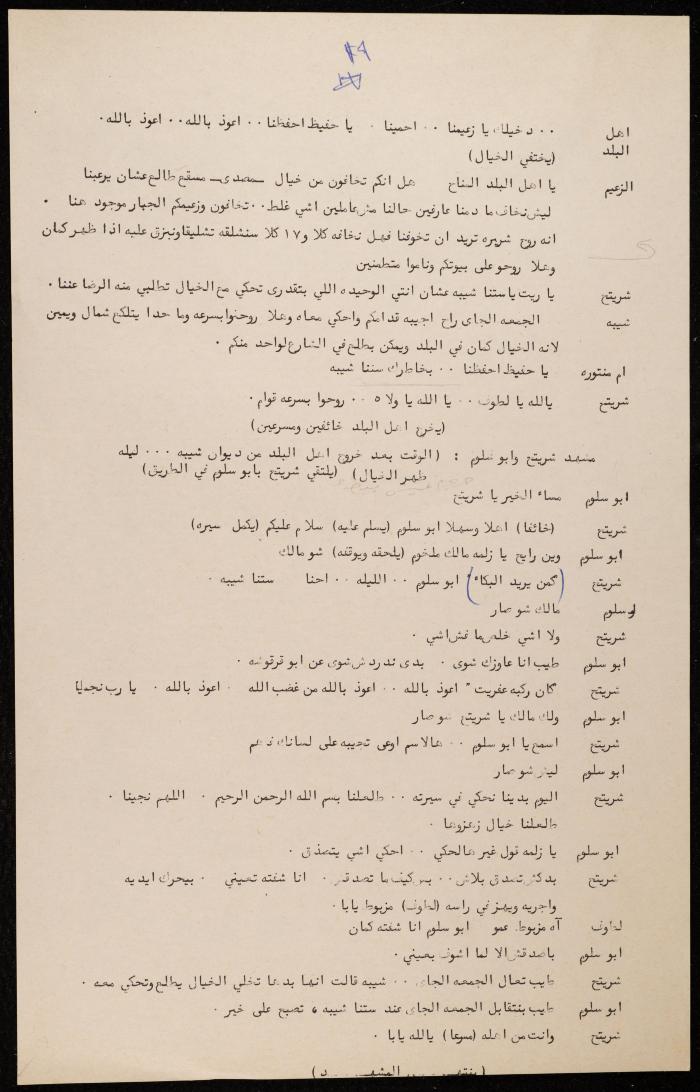 اهل البلد ٠٠ دخيلك يا زعيمنا ٠٠ احمينا ٠ يا حفيظ احفظنا ٠٠ اعوذ بالله ٠٠ اعوذ بالله ٠
(يختفي الخيال)
الزعيم يا اهل البلد المناح هل انكم تخافون من خيال مصدى مسقع طالع عشان يرعبنا
ليش نخاف ما دمنا عارفين حالنا مش عاملين اشي غلط ٠٠ تخافون وزعيمكم الجبار موجود هنا ٠
انه روح شريره تريد ان تخوفنا فهل نخافه كلا و١٧ كلا سنشلقه تشليقا ونبزق عليه اذا ظهر كمان
وهلا روحو على بيوتكم وناموا متطمنين
شريتح يا ريت يا ستنا شيبه عشان انتي الوحيده اللي بتقدرى تحكي مع الخيال تطلبي منه الرضا عننا ٠
شيبه الجمعه الجاى راح اجيبه قدامكم واحكي معاه وهلا روحنوا بسرعه وما حدا يتلكع شمال ويمين
لانه الخيال كمان في البلد ويمكن يطلع في الشارع لواحد منكم ٠
ام منتوره يا حفيظ احفظنا ٠٠ بخاطرك ستنا شيبه
شريتح يالله يا لطوف ٠٠ يا الله يا ولا ه ٠٠ روحوا بسرعه قوام ٠
(يخرج اهل البلد خائفين ومسرعين)
مشهد شريتح وابو سلوم : (الوقت بعد خروج اهل البلد من ديوان شيبه ٠٠٠ ليله
ظهر الخيال) (يلتقي شريتح بابو سلوم في الطريق)
ابو سلوم مساء الخير يا شريتح
شريتح (خائفا) اهلا وسهلا ابو سلوم (يسلم عليه) سلام عليكم (يكمل سيره)
ابو سلوم وين رايح يا زلمه مالك ملخوم (يلحقه ويوقفه) شو مالك
شريتح (كمن يريد البكاء) ابو سلوم ٠٠ الليله ٠٠ احنا ستنا شيبه ٠
ابو سلوم مالك شو صار
شريتح ولا اشي خلص ما فش اشي ٠
ابو سلوم طيب انا عاوزك شوى ٠ بدى ندردش شوى عن ابو قرقوشه ٠
شريتح "كان ركبه عفريت" اعوذ بالله ٠٠ اعوذ بالله من غضب الله ٠ اعوذ بالله ٠ يا رب نجدنا
ابو سلوم ولك مالك يا شريتح شو صار
شريتح اسمع يا ابو سلوم ٠٠ هالاسم اوعى تجيبه على لسانك فاهم
ابو سلوم ليش شو صار
شريتح اليوم بدينا نحكي في سيرته ٠٠ طلعلنا بسم الله الرحمن الرحيم ٠ اللهم نجينا ٠
طلعلنا خيال زعزوها ٠
ابو سلوم يا زلمه قول غير هالحكي ٠٠ احكي اشي يتصدق ٠
شريتح بدكش تصدق بلاش ٠٠ بس كيف ما تصدقش ٠ انا شفته بعيني ٠ بيحرك ايديه
واجريه ويهز في راسه (لطوف) مزبوط يابا ٠
لطوف آه مزبوط عمو ابو سلوم انا شفته كمان
ابو سلوم باصدقش الا لما اشوف بعيني ٠
شريتح طيب تعال الجمعه الجاى ٠٠ شيبه قالت انها بدها تخلي الخيال يطلع وتحكي معه ٠
ابو سلوم طيب بنتقابل الجمعه الجاى عند ستنا شيبه ، تصبح على خير ٠
شريتح وانت من اهله (مسرعا) يالله يابا ٠